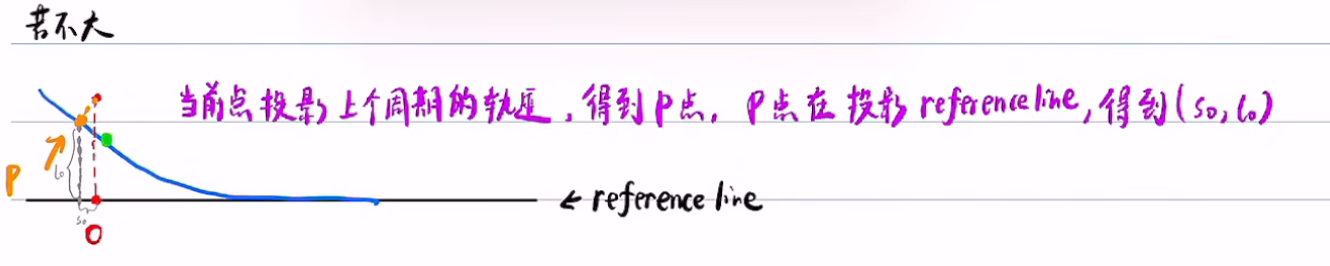 若不大
当前点投影上个周期的轨迹,得到P点. P点在投影reference line,得到(s₀,l₀)
P
l₀
← reference line
s₀
O